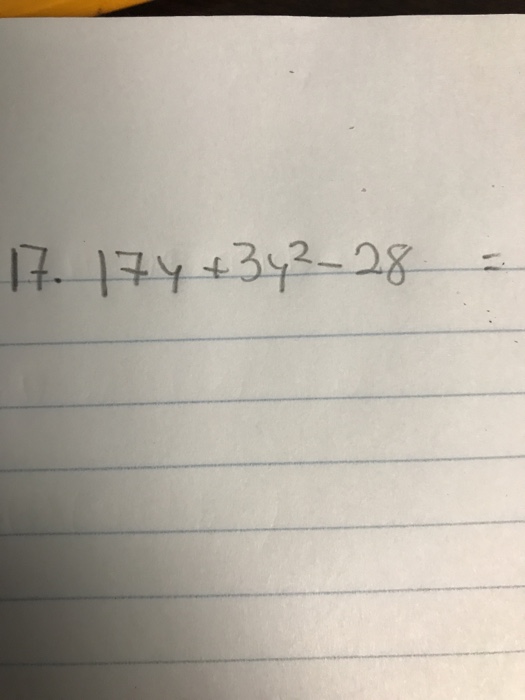 17. 17y + 3y² - 28 =